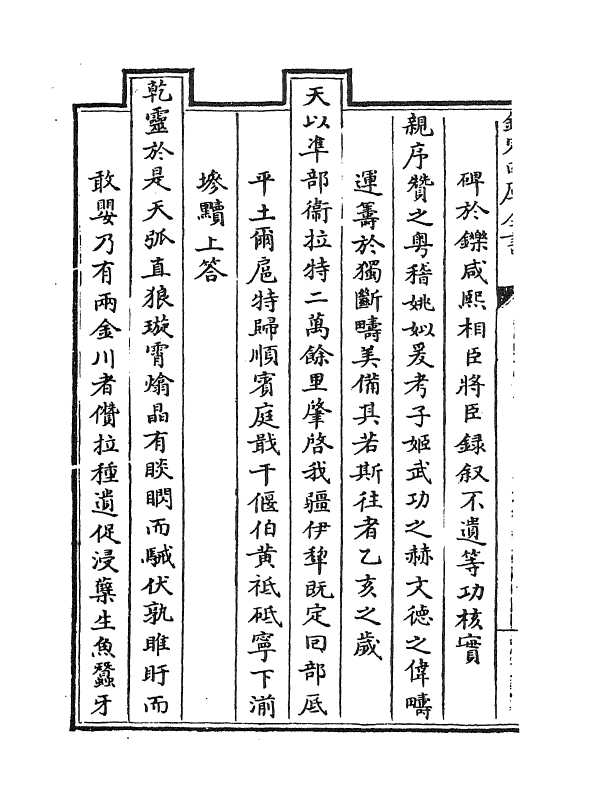 碑於鑠咸熙相臣將臣録叙不遺等功核實
親序贊之粤稽姚姒爰考子姬武功之赫文德之偉疇
運籌於獨斷疇美備其若斯往者乙亥之歲
天以準部衞拉特二萬餘里肇啓我疆伊犂既定回部底
平土爾扈特歸順賓庭戢干偃伯黄祗砥寧下湔
墋黷上答
乾靈於是天弧直狼璇霄爚晶有睒閃而駴伏孰睢盱而
敢嬰乃有兩金川者儹拉種遺促浸蘖生魚蠶牙